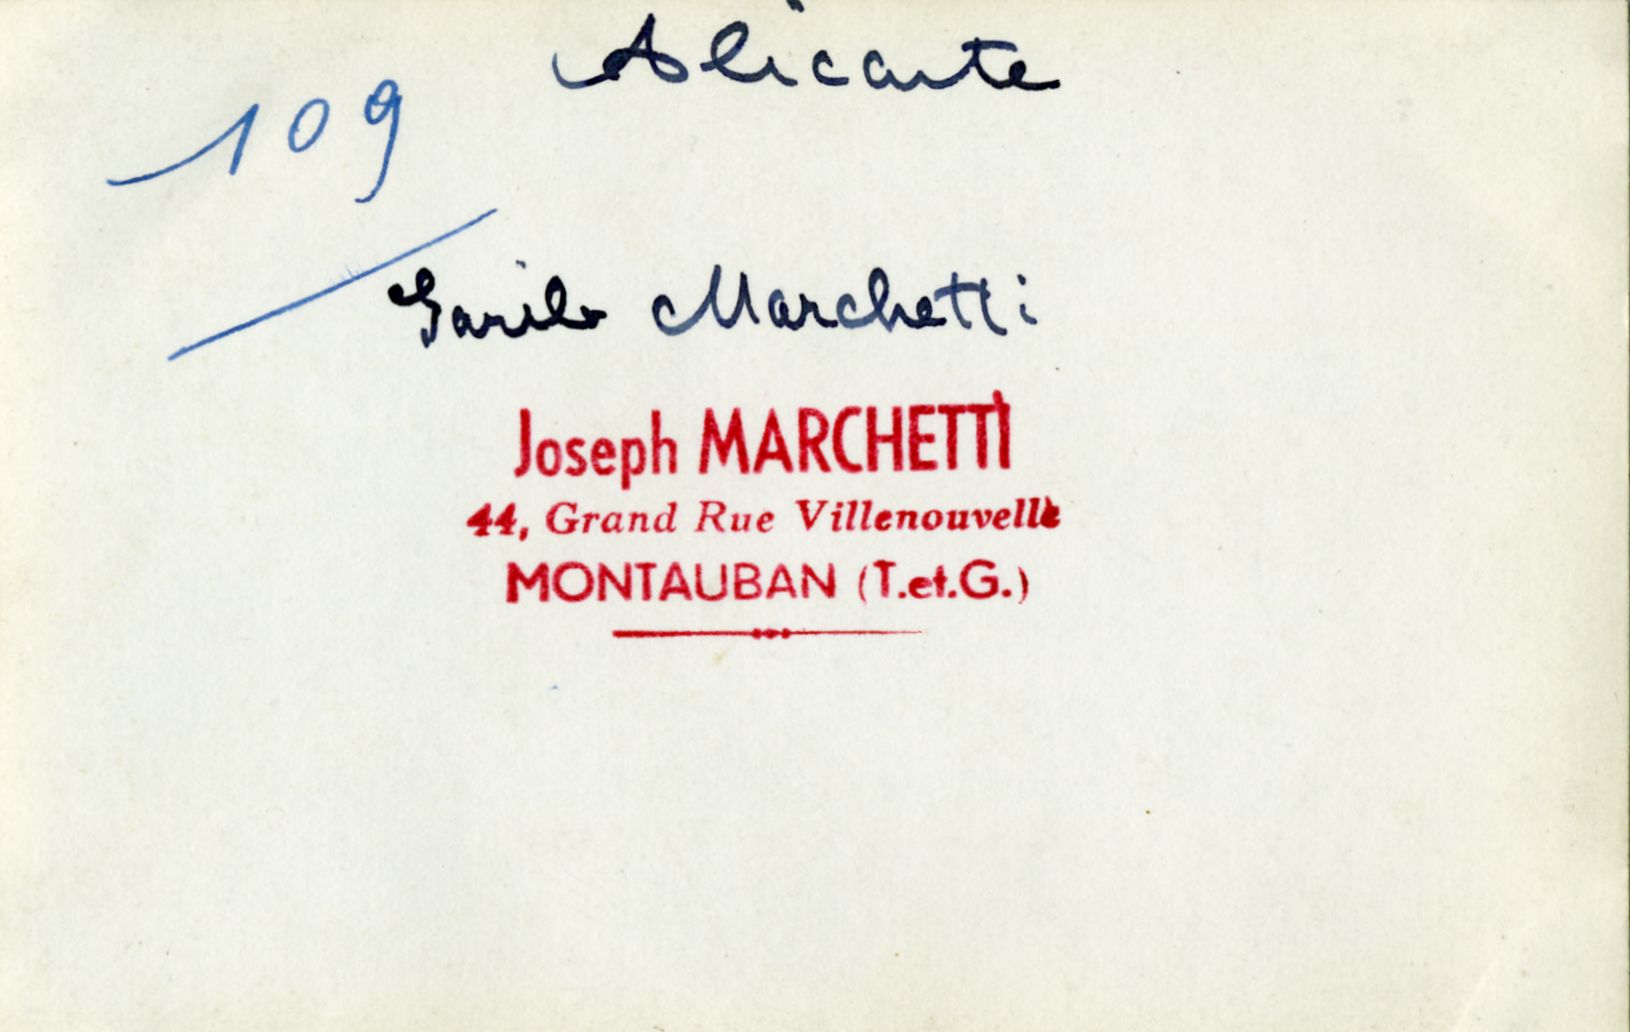 Alicante
109
Marchetti
Joseph MARCHETTI
44, Grand Rue Villenouvelle
MONTAUBAN (T.et.G.)